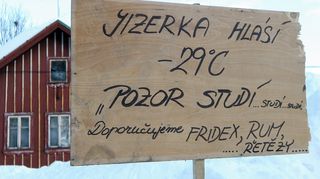 JIZERKA HLÁSÍ
-29°C
„POZOR STUDÍ...STUDÍ...STUDÍ..
Doporučujeme FRIDEX, RUM,
.....! ŘETĚZY.....